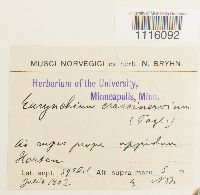 1116092
MUSCI NORVEGICI ex herb. N. BRYHN.
Herbarium of the University,
Minneapolis, Minn.
Eurynchium crassinervium
(Tayl.)
Ad rupes prope oppidum
Horten
Lat. sept. 59° Alt. supra mare 5 m